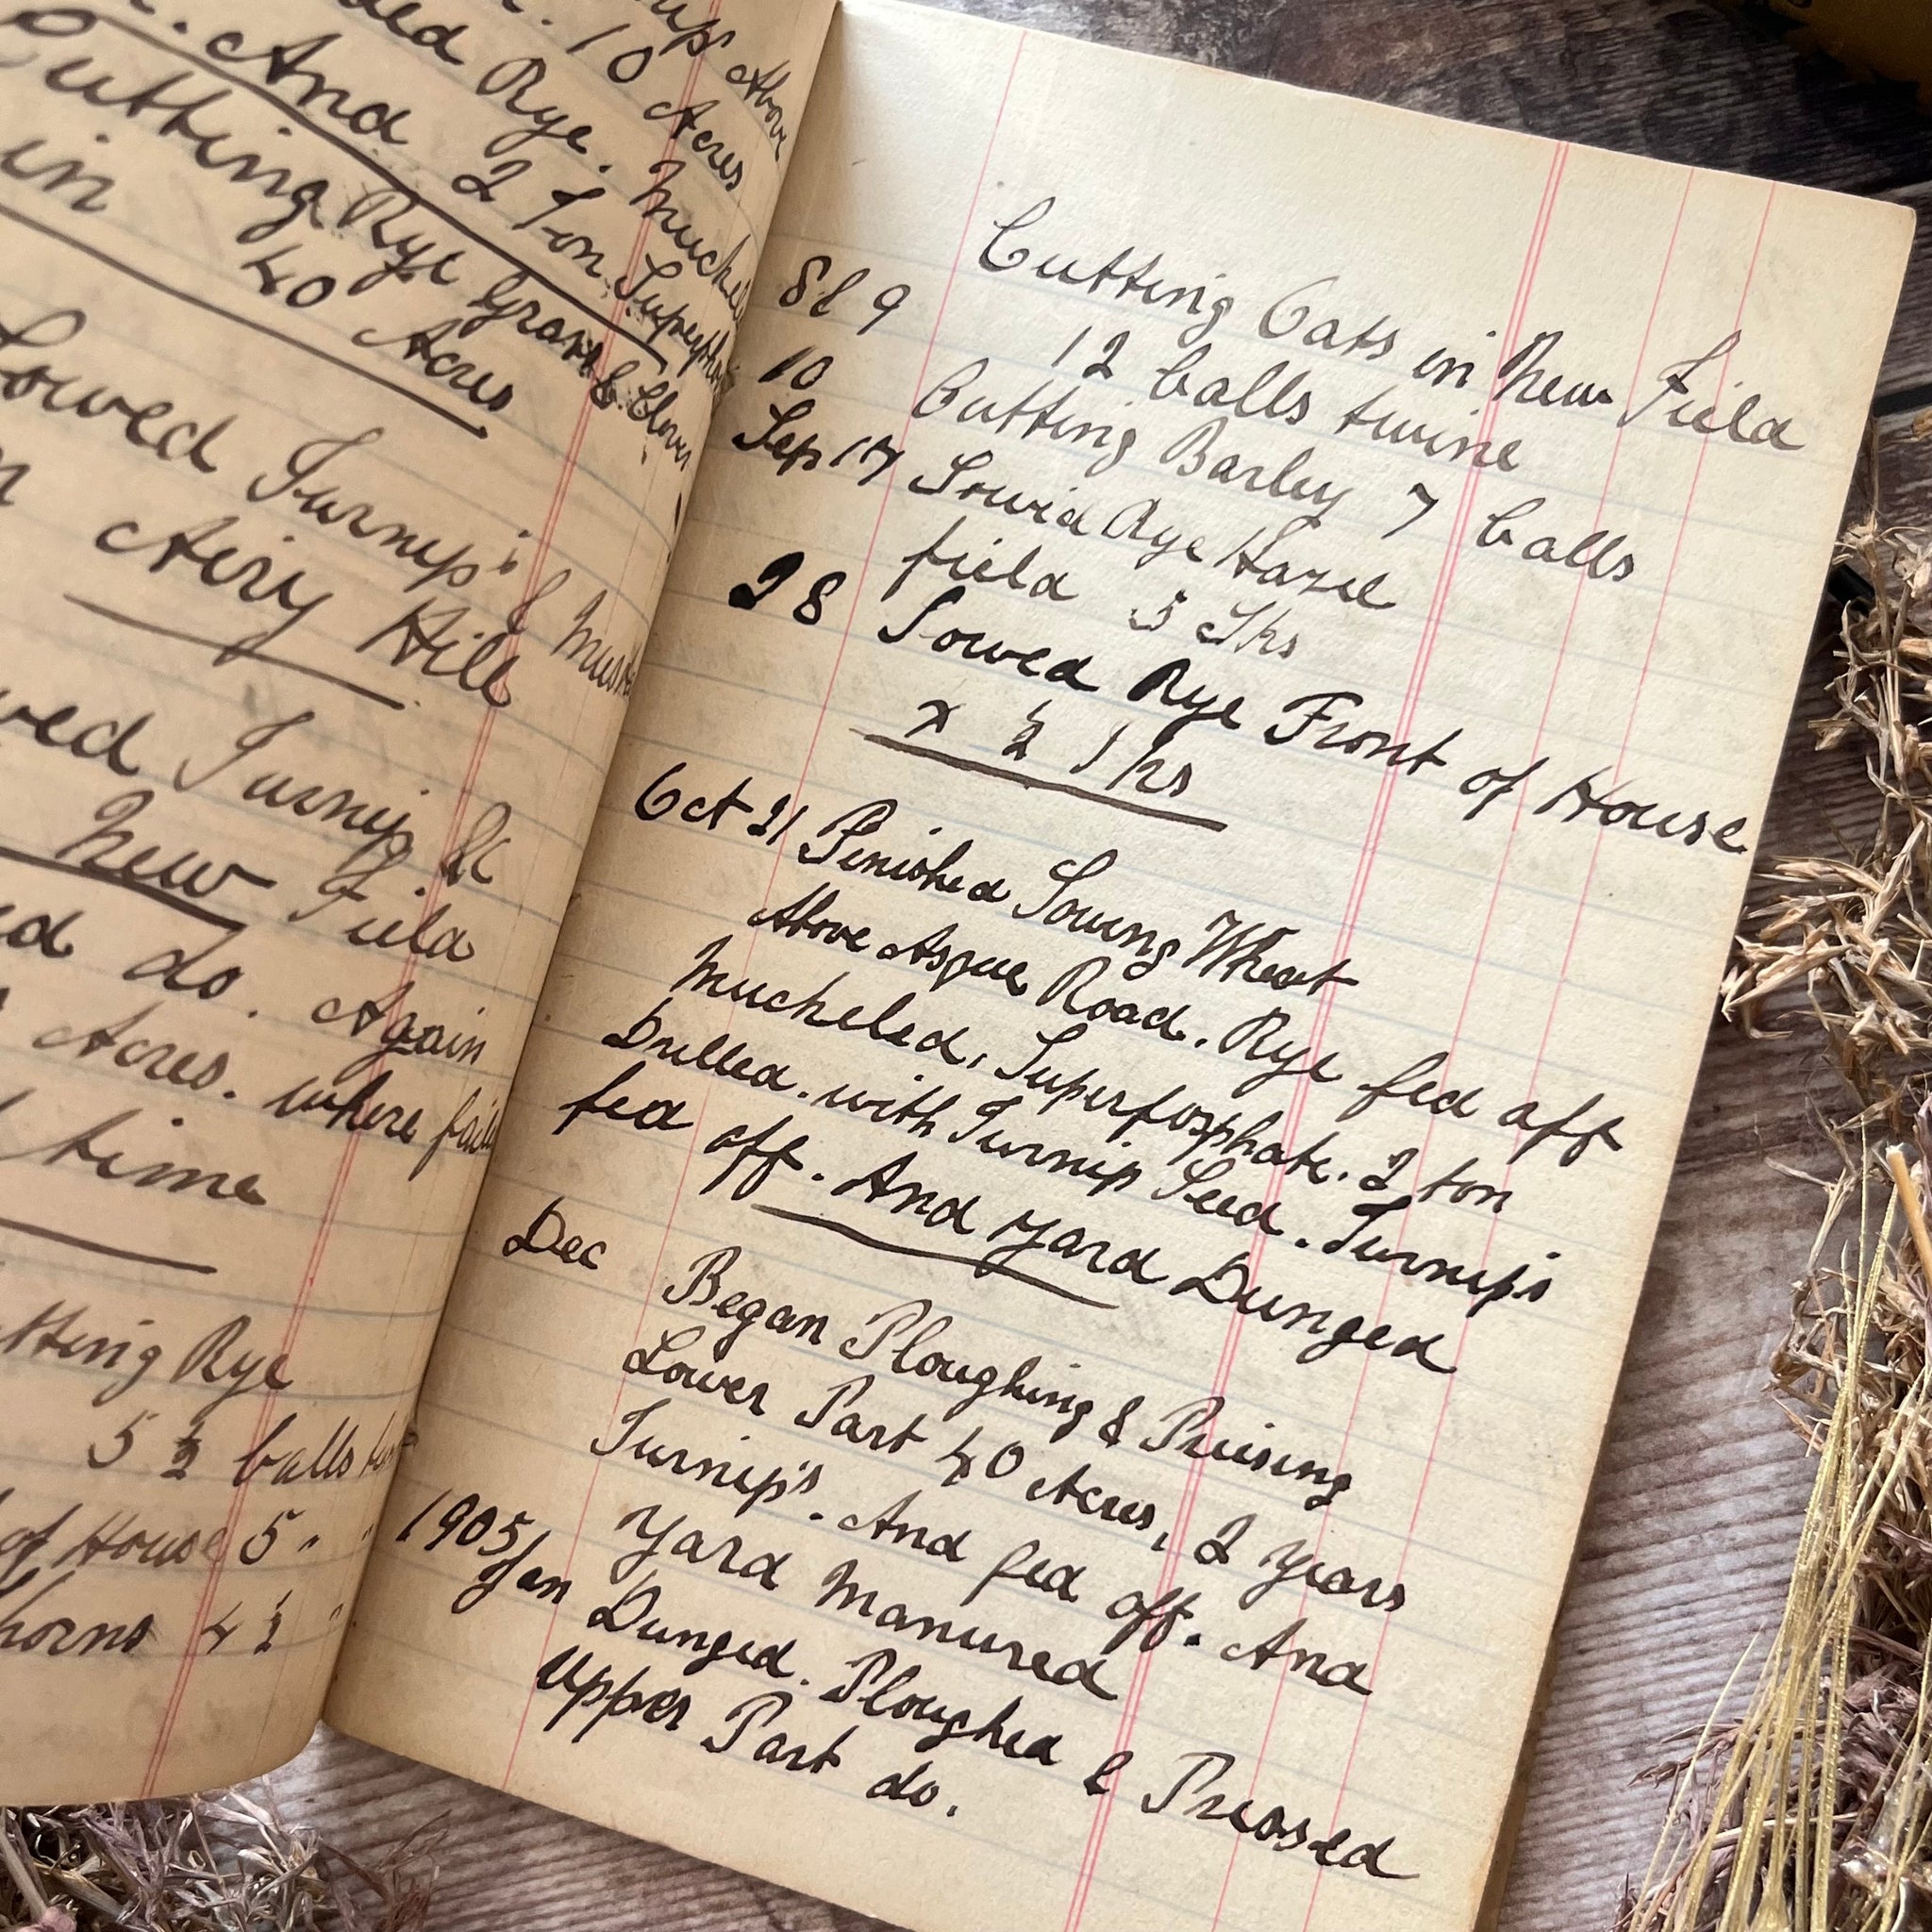 And 2 Ton
Cutting Rye Grass & Clover
in 40 Acres
Sowed Turnip's &
Airy Hill
Turnip &c
New Field
do. Again
Acres. where
time
Rye
5 ½ balls
of House 5 " "
4 ½ "
Above
Rye. 10 Acres
9 Cutting Oats in New Field
12 balls twine
10 Cutting Barley 7 balls
Sep 17 Sowed Rye Hazel
field 5
28 Sowed Rye Front of House
x 2
Oct 21 Finished Sowing Wheat
Above Aspue Road. Rye fed off
Mucheled. Superfosphate. 2 ton
Drilled. with Turnip Seed. Turnip's
fed off. And Yard Dunged
Dec Began Ploughing & Prising
Lower Part 40 Acres, 2 Years
Turnip's. And fed off. And
Yard Manured
1905
Jan Dunged. Ploughed & Pressed
Upper Part do.